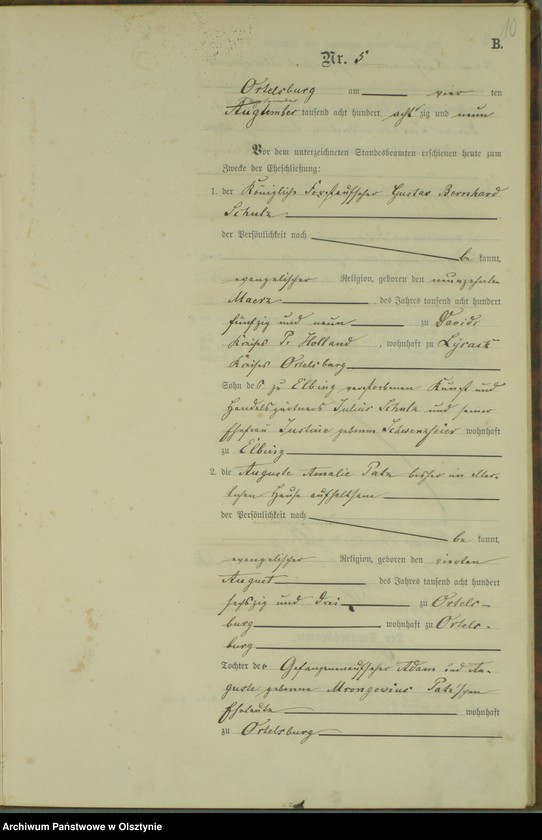 10
B.
Nr. 5
Ortelsburg am vier ten
tausend acht hundert acht zig und neun
Vor dem unterzeichneten Standesbeamten erschienen heute zum
Zwecke der Eheschließung:
1. der Königliche Forstaufseher Gustav Bernhard
Schulz
der Persönlichkeit nach
be kannt,
evangelischer Religion, geboren den neunzehnten
Maerz des Jahres tausend acht hundert
fünfzig und neun zu Davids
Kreises Pr Holland, wohnhaft zu
Kreises Ortelsburg
Sohn des zu Elbing verstorbenen Kunst und
Handelsgärtners Julius Schulz und seiner
Ehefrau Justine geborene wohnhaft
zu Elbing
2. die Auguste Amalie Patz bisher im elter-
lichen Hause aufhaltsam
der Persönlichkeit nach
be kannt,
evangelischer Religion, geboren den vierten
August des Jahres tausend acht hundert
sechszig und drei zu Ortels-
burg wohnhaft zu Ortels-
burg
Tochter der Gefangenenaufseher Adam und Au-
guste geborene Mrongowius Patz'schen
Eheleute wohnhaft
zu Ortelsburg
Archiwum Państwowe w Olsztynie